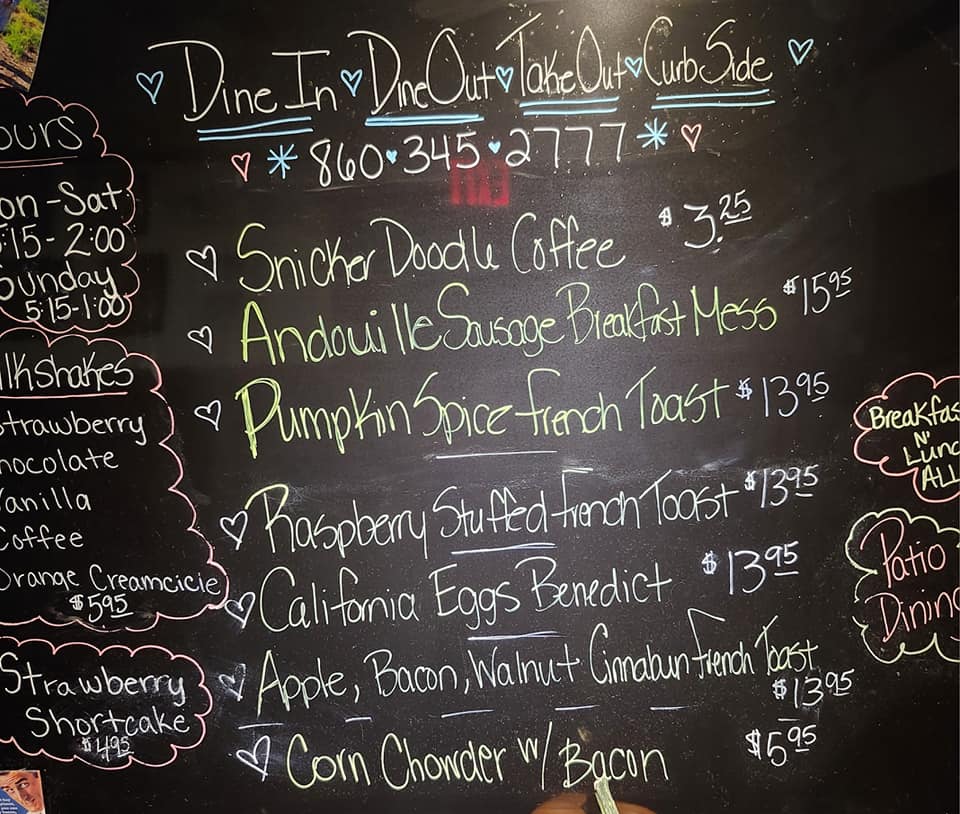 Dine In Dine Out Take Out Curb Side
860 345 2777
Snicker Doodle Coffee $3.25
Andouille Sausage Breakfast Mess $15 95
Pumpkin Spice french Toast $13 95
Raspberry Stuffed french Toast $13 95
California Eggs Benedict $13 95
Apple, Bacon, Walnut Cinnabun french Toast
$13 95
Corn Chowder w/ Bacon $5 95
ours
on - Sat
:15 - 2:00
Sunday
5:15-1:00
lkshakes
Strawberry
hocolate
Vanilla
Coffee
Orange Creamcicle
$5 95
Strawberry
Shortcake
$4 95
Breakfas
N'
Lunc
ALL
Patio
Dining